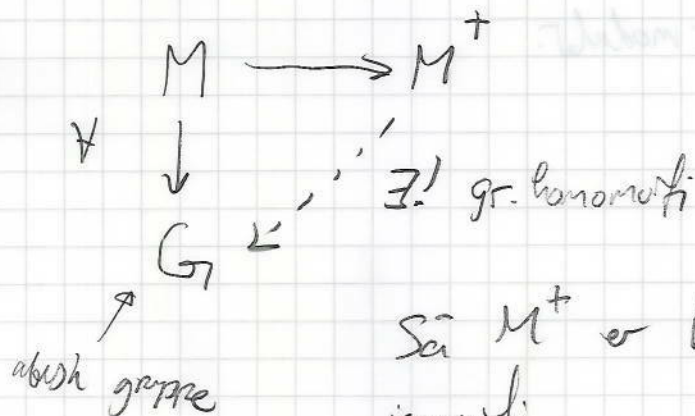 M → M⁺
∀ ↓ ∃! gr. homomorfi
G
abelsk gruppe
Så M⁺ er